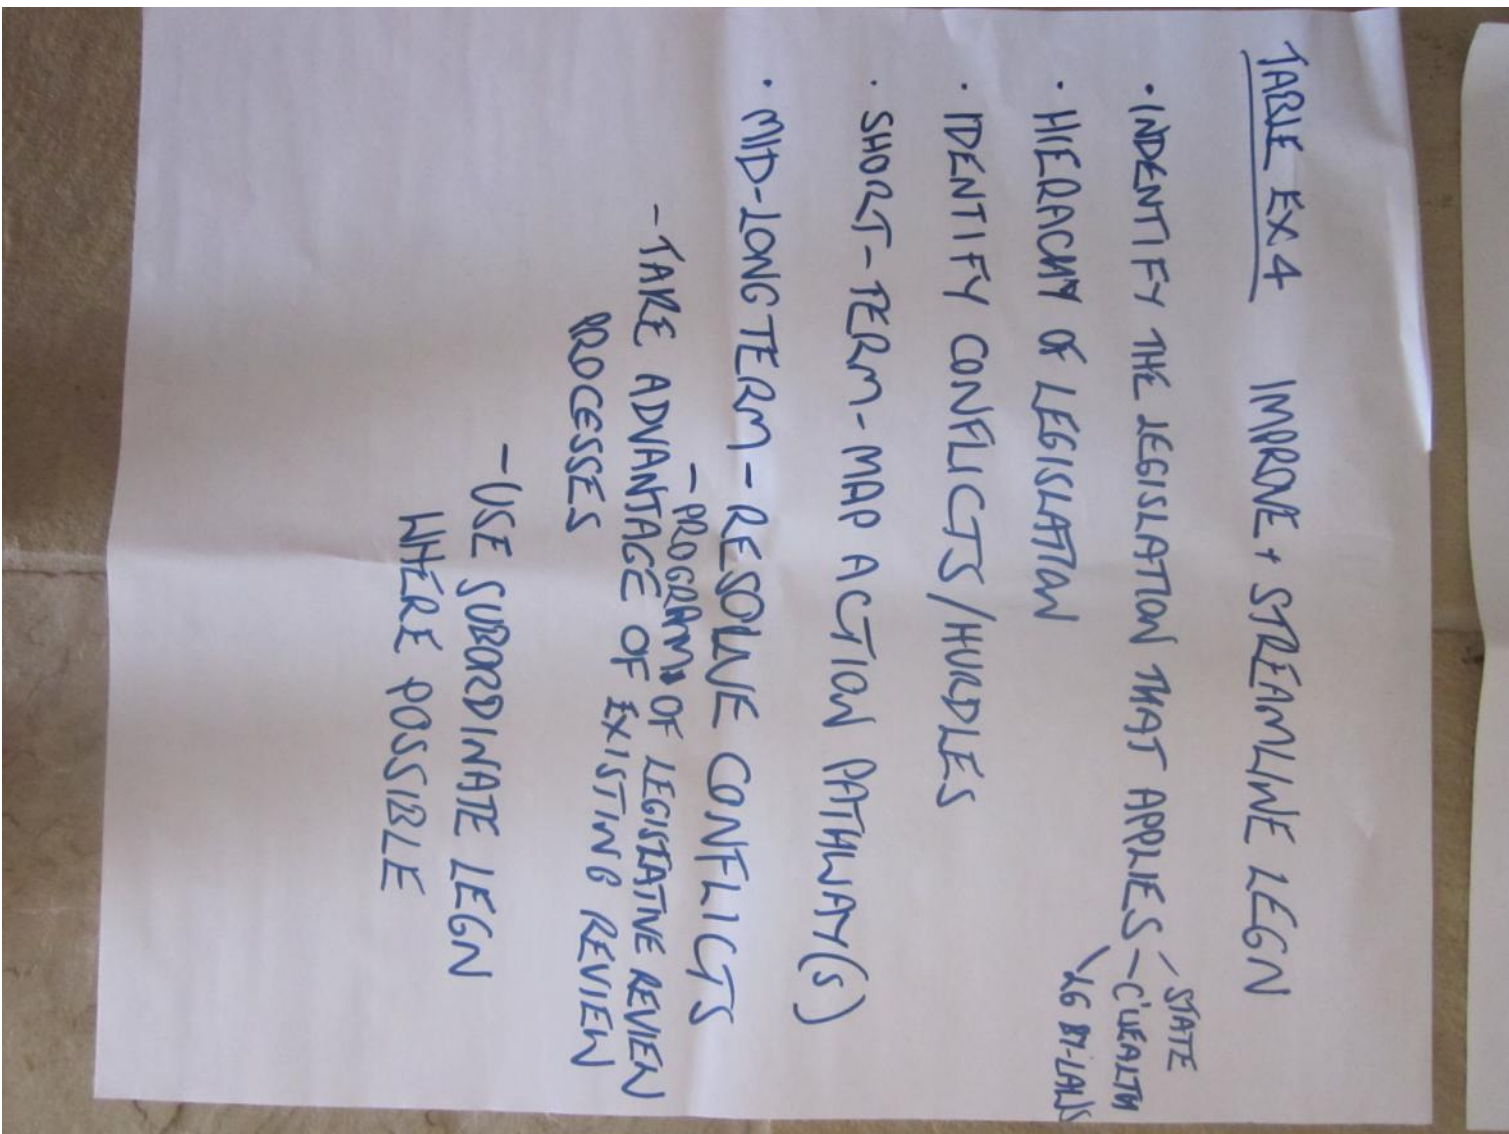 TABLE EX4 IMPROVE + STREAMLINE LEGN
• INDENTIFY THE LEGISLATION THAT APPLIES - STATE
- C'WEALTH
LG BY-LAWS
• HIERACHY OF LEGISLATION
• IDENTIFY CONFLICTS/HURDLES
• SHORT-TERM - MAP ACTION PATHWAY(S)
• MID-LONG TERM - RESOLVE CONFLICTS
- PROGRAM OF LEGISLATIVE REVIEW
- TAKE ADVANTAGE OF EXISTING REVIEW
PROCESSES
- USE SUBORDINATE LEGN
WHERE POSSIBLE